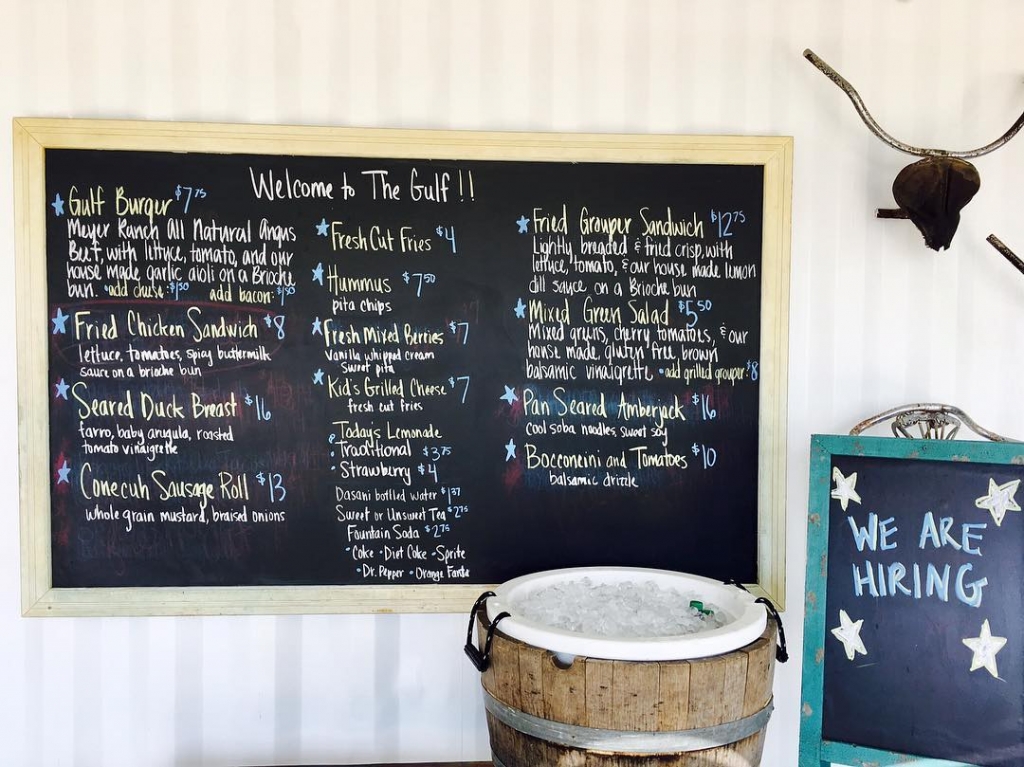 Welcome to The Gulf!!
Gulf Burger $7.75
Meyer Ranch All Natural Angus
Beef, with lettuce, tomato, and our
house made garlic aioli on a Brioche
bun. •add cheese: $1.50 add bacon: $1.50
Fried Chicken Sandwich $8
lettuce, tomatoes, spicy buttermilk
sauce on a brioche bun
Seared Duck Breast $16
farro, baby arugula, roasted
tomato vinaigrette
Conecuh Sausage Roll $13
whole grain mustard, braised onions
Fresh Cut Fries $4
Hummus $7.50
pita chips
Fresh Mixed Berries $7
Vanilla whipped cream
sweet pita
Kid's Grilled Cheese $7
fresh cut fries
Today's Lemonade
• Traditional $3.75
• Strawberry $4
Dasani bottled water $1.37
Sweet or Unsweet Tea $2.75
Fountain Soda $2.75
• Coke • Diet Coke • Sprite
• Dr. Pepper • Orange Fanta
Fried Grouper Sandwich $12.75
Lightly breaded & fried crisp, with
lettuce, tomato, & our house made lemon
dill sauce on a Brioche bun
Mixed Green Salad $5.50
Mixed greens, cherry tomatoes, & our
house made, gluten free, brown
balsamic vinaigrette •add grilled grouper: $8
Pan Seared Amberjack $16
cool soba noodles, sweet soy
Bocconcini and Tomatoes $10
balsamic drizzle
WE ARE
HIRING